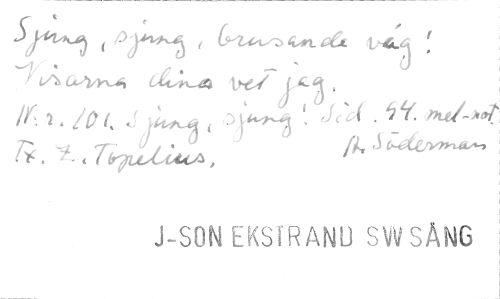 Sjung, sjung, brusande våg!
Visarna dina vet jag.
N:r. 101. Sjung, sjung! Sid. 94. mel-not.
Tx. Z. Topelius. A. Söderman
J-SON EKSTRAND SW SÅNG